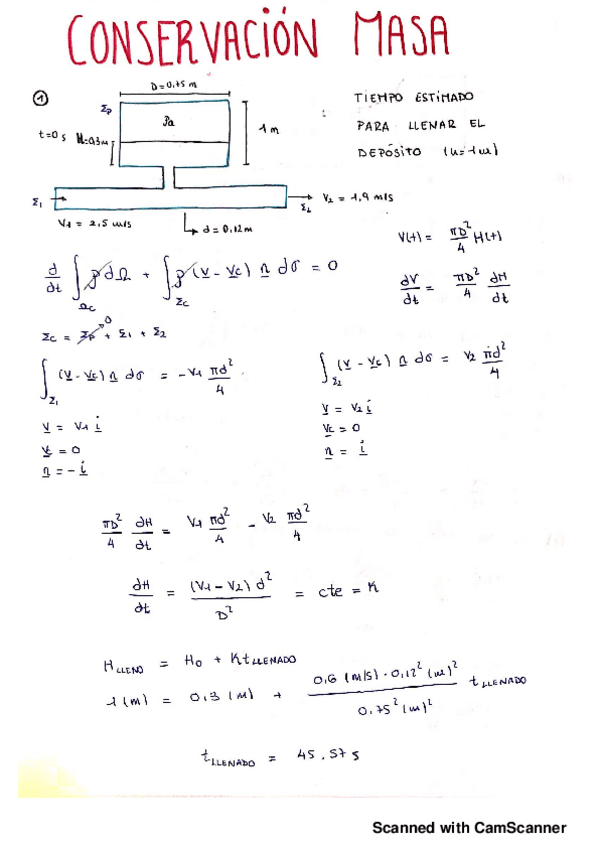 CONSERVACIÓN MASA
①
D=0,75 m
Σp
Pa
t=0 s
H=0,3m
1 m
:
TIEMPO ESTIMADO
PARA LLENAR EL
DEPÓSITO (H=1m)
Σ1
V1 = 2,5 m/s
d = 0,12m
Σ2
V2 = 1,9 m/s
V(t) = πD²/4 H(t)
d/dt ∫Ωc ρ dΩ + ∫Σc ρ (v - vc) n dσ = 0
dV/dt = πD²/4 dH/dt
Σc = Σp→0 + Σ1 + Σ2
∫Σ1 (v - vc) n dσ = -V1 πd²/4
∫Σ2 (v - vc) n dσ = V2 πd²/4
v = V1 i
vc = 0
n = - i
v = V2 i
vc = 0
n = i
πD²/4 dH/dt = V1 πd²/4 - V2 πd²/4
dH/dt = (V1 - V2) d²/D² = cte = K
HLLENO = H0 + K tLLENADO
1 (m) = 0,3 (m) + 0,6 (m/s) · 0,12² (m)²/0.75² (m)² tLLENADO
tLLENADO = 45.57 s
Scanned with CamScanner